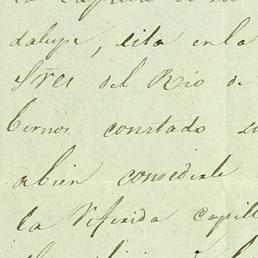 la Capilla de
dalupe, sita en la
Sres del Rio de
constado
abien consederle
la Referida capill